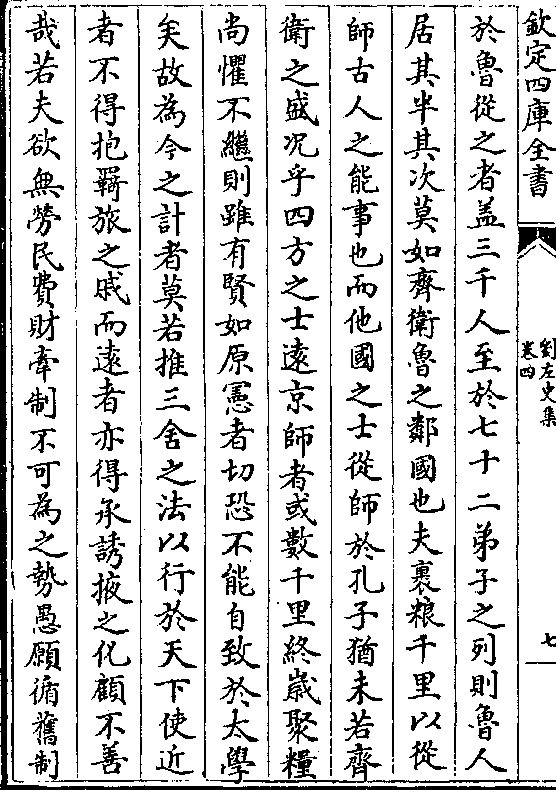 欽定四庫全書
劉左史集
卷四
七
於魯從之者盖三千人至於七十二弟子之列則魯人
居其半其次莫如齊衛魯之鄰國也夫裹粮千里以從
師古人之能事也而他國之士從師於孔子猶未若齊
衛之盛况乎四方之士遠京師者或數千里終嵗聚糧
尚懼不繼則雖有賢如原憲者切恐不能自致於太學
矣故為今之計者莫若推三舍之法以行於天下使近
者不得抱羇旅之戚而遠者亦得承誘掖之化顧不善
哉若夫欲無勞民費財牽制不可為之勢愚願循舊制